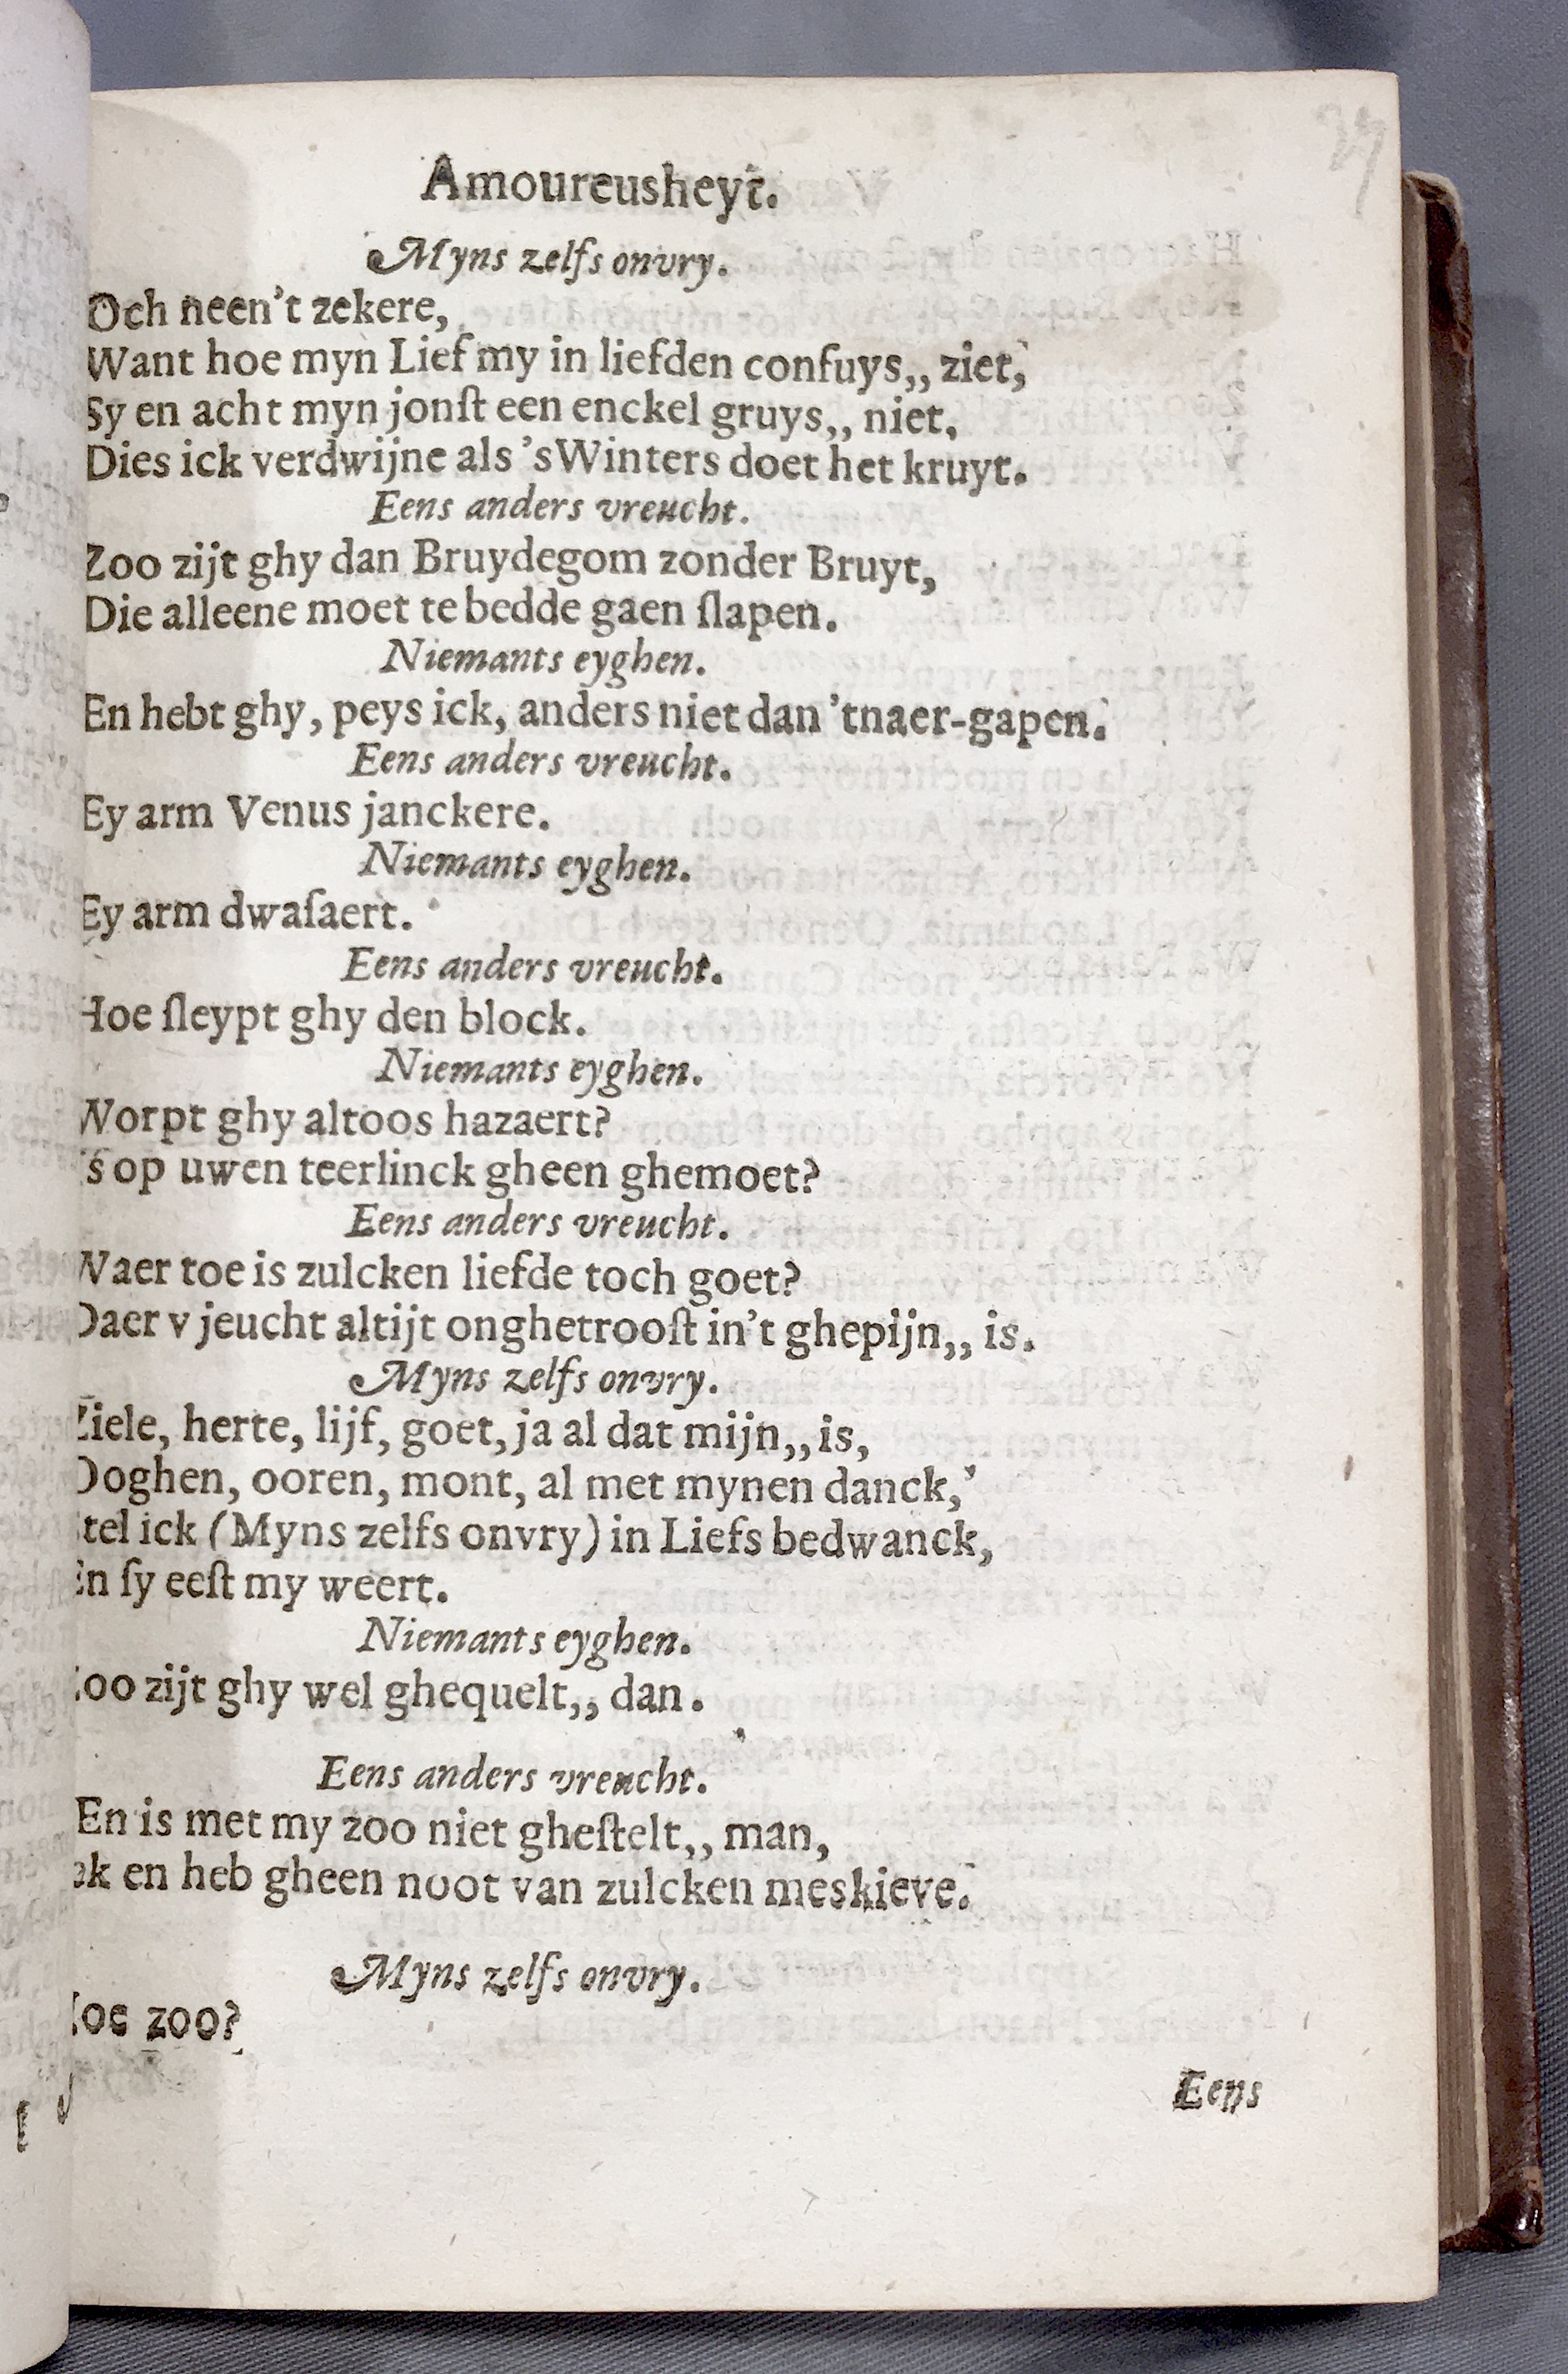 39
Amoureusheyt.
Myns zelfs onvry.
Och neen't zekere,
Want hoe myn Lief my in liefden confuys,, ziet,
Sy en acht myn jonſt een enckel gruys,, niet,
Dies ick verdwijne als 'sWinters doet het kruyt.
Eens anders vreucht.
Zoo zijt ghy dan Bruydegom zonder Bruyt,
Die alleene moet te bedde gaen ſlapen.
Niemants eyghen.
En hebt ghy, peys ick, anders niet dan 'tnaer-gapen.
Eens anders vreucht.
Ey arm Venus janckere.
Niemants eyghen.
Ey arm dwaſaert.
Eens anders vreucht.
Hoe ſleypt ghy den block.
Niemants eyghen.
Worpt ghy altoos hazaert?
's op uwen teerlinck gheen ghemoet?
Eens anders vreucht.
Waer toe is zulcken liefde toch goet?
Daer v jeucht altijt onghetrooſt in't ghepijn,, is.
Myns zelfs onvry.
Ziele, herte, lijf, goet, ja al dat mijn,, is,
Ooghen, ooren, mont, al met mynen danck,
tel ick (Myns zelfs onvry) in Liefs bedwanck,
En ſy eeſt my weert.
Niemants eyghen.
oo zijt ghy wel ghequelt,, dan.
Eens anders vreucht.
En is met my zoo niet gheſtelt,, man,
ck en heb gheen noot van zulcken meskieve.
Myns zelfs onvry.
oe zoo?
Eens